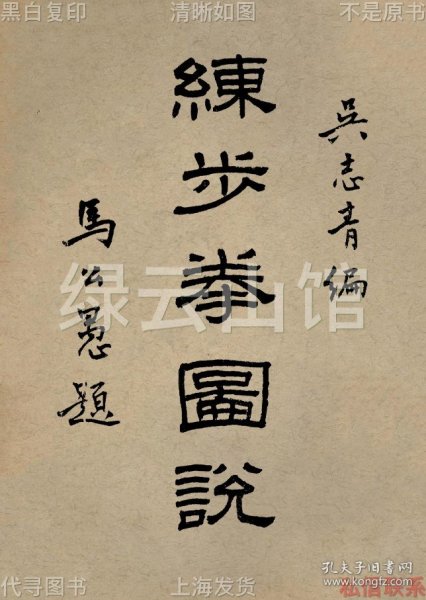 黑白复印 清晰如图 不是原书
吴志青编
練步拳圖說
馬公愚題
绿云山馆
代寻图书 上海发货 私信联系
孔夫子旧书网
www.kongfz.com